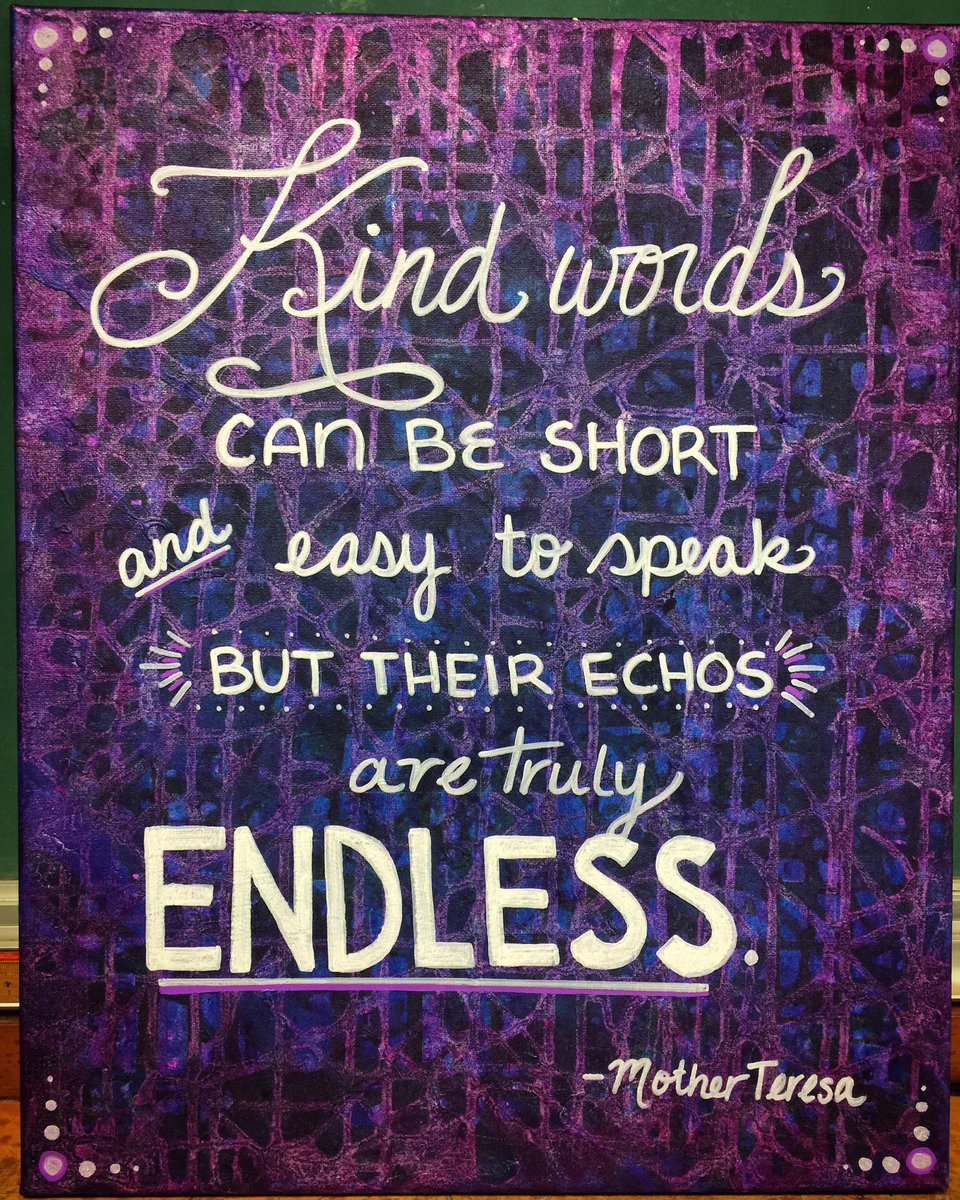 Kind words
CAN BE SHORT
and easy to speak
BUT THEIR ECHOS
are truly
ENDLESS.
-Mother Teresa